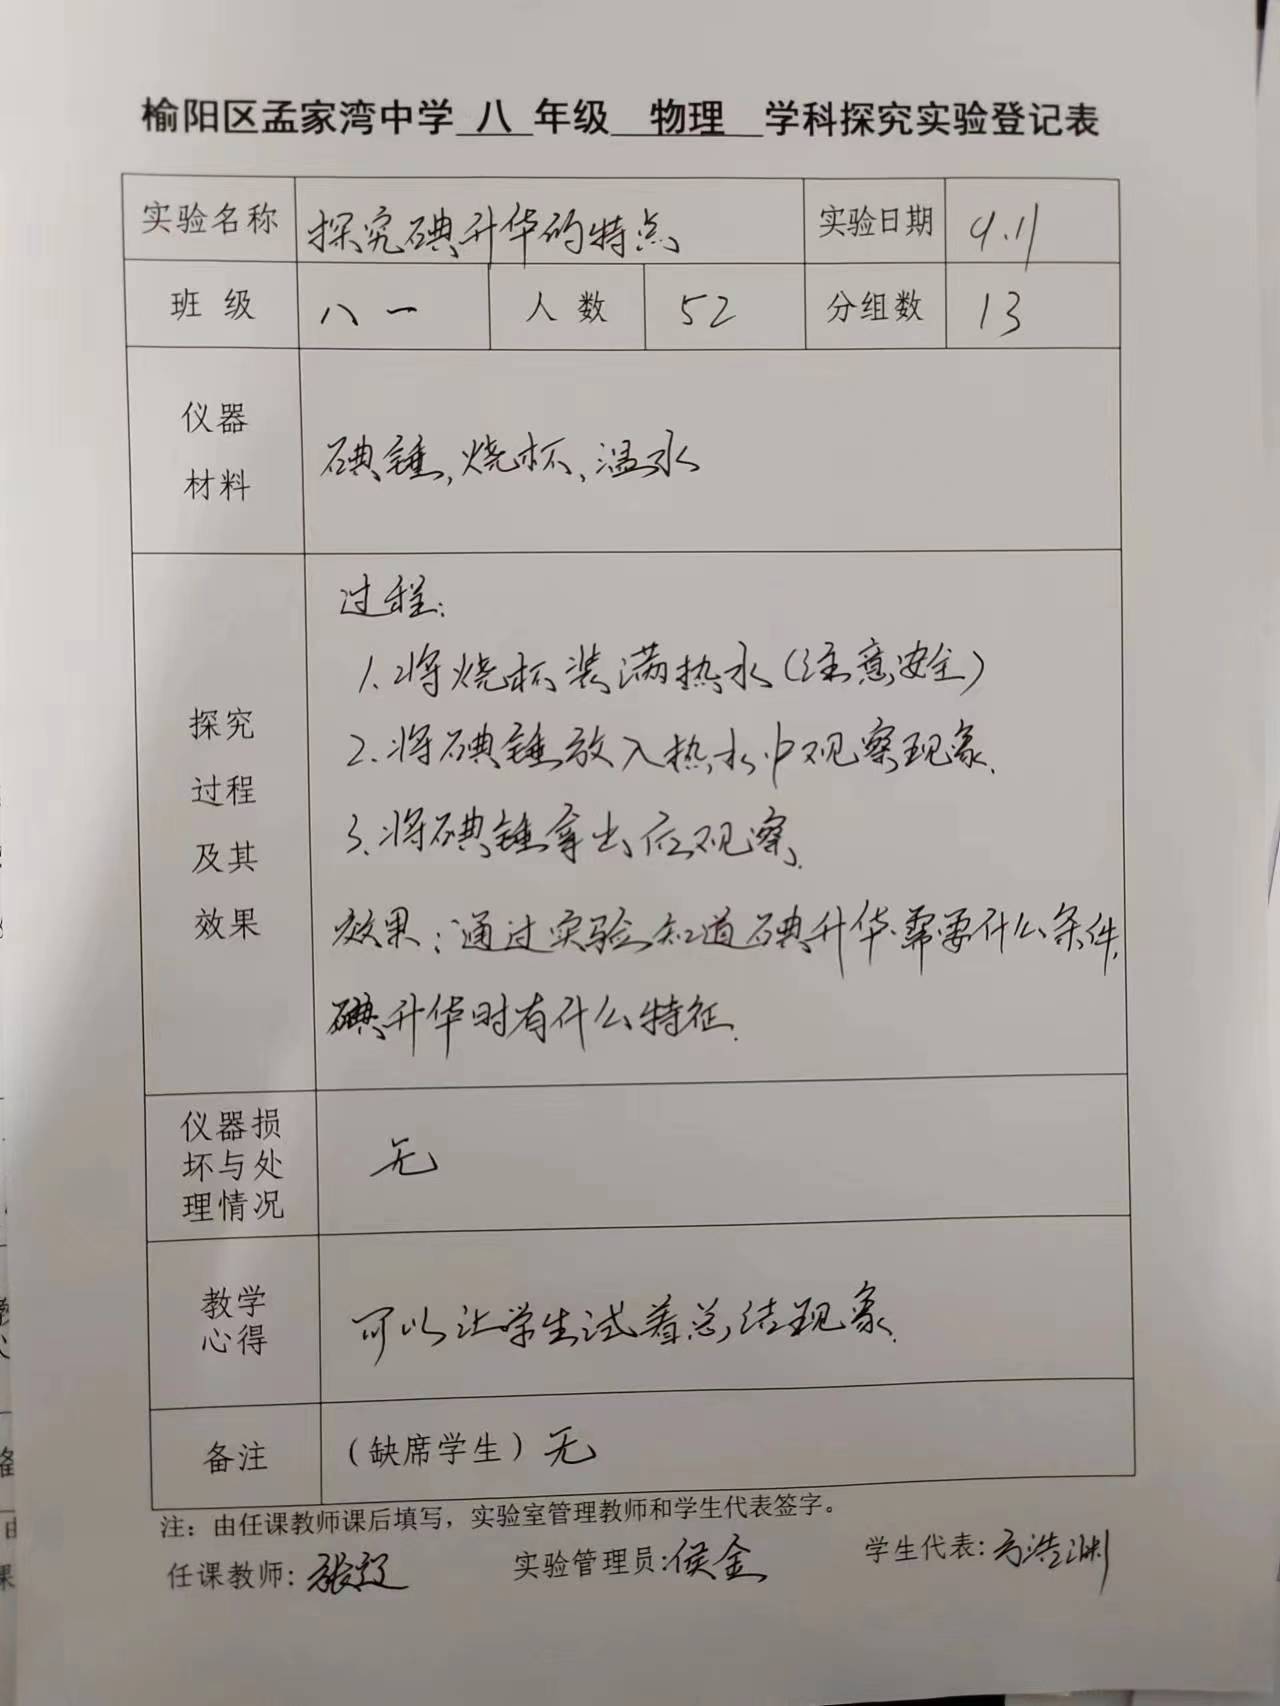 榆阳区孟家湾中学 八 年级 物理 学科探究实验登记表
实验名称 探究碘升华的特点 实验日期 9.11
班级 八一 人数 52 分组数 13
仪器
材料
碘锤,烧杯,温水
探究
过程
及其
效果
过程:
1.将烧杯装满热水(注意安全)
2.将碘锤放入热水中观察现象.
3.将碘锤拿出后观察.
效果:通过实验知道碘升华需要什么条件,
碘升华时有什么特征.
仪器损
坏与处
理情况
无
教学
心得
可以让学生试着总结现象.
备注 (缺席学生)无
注:由任课教师课后填写,实验室管理教师和学生代表签字。
任课教师: 实验管理员:侯金 学生代表: